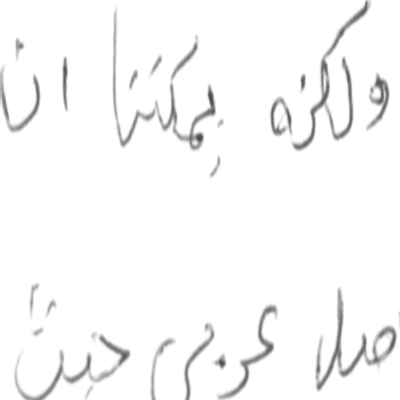 ولكنه يمكننا ان
صل عربى حيث